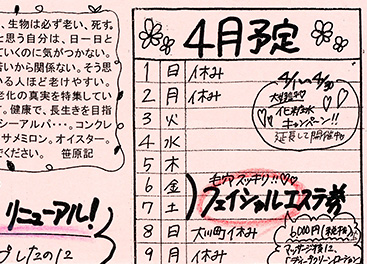 、生物は必ず老い、死す。
と思う自分は、日一日と
ていくのに気がつかない。
若いから関係ない。そう思
いる人ほど老けやすい。
老化の真実を特集してい
す。健康で、長生きを目指
シーアルパ・・・。コンクレ
サメミロン。オイスター。
ください。 笹原記
リニューアル!
プしたの12
4月予定
1 日 休み
2 月 休み
3 火
4 水
5 木
6 金
7 土
8 日 大川町休み
9 月 休み
4/1〜4/30
大好評
化粧水
キャンペーン!!
延長して開催中
毛穴スッキリ!!
フェイシャルエステ券
6,000円(税抜)